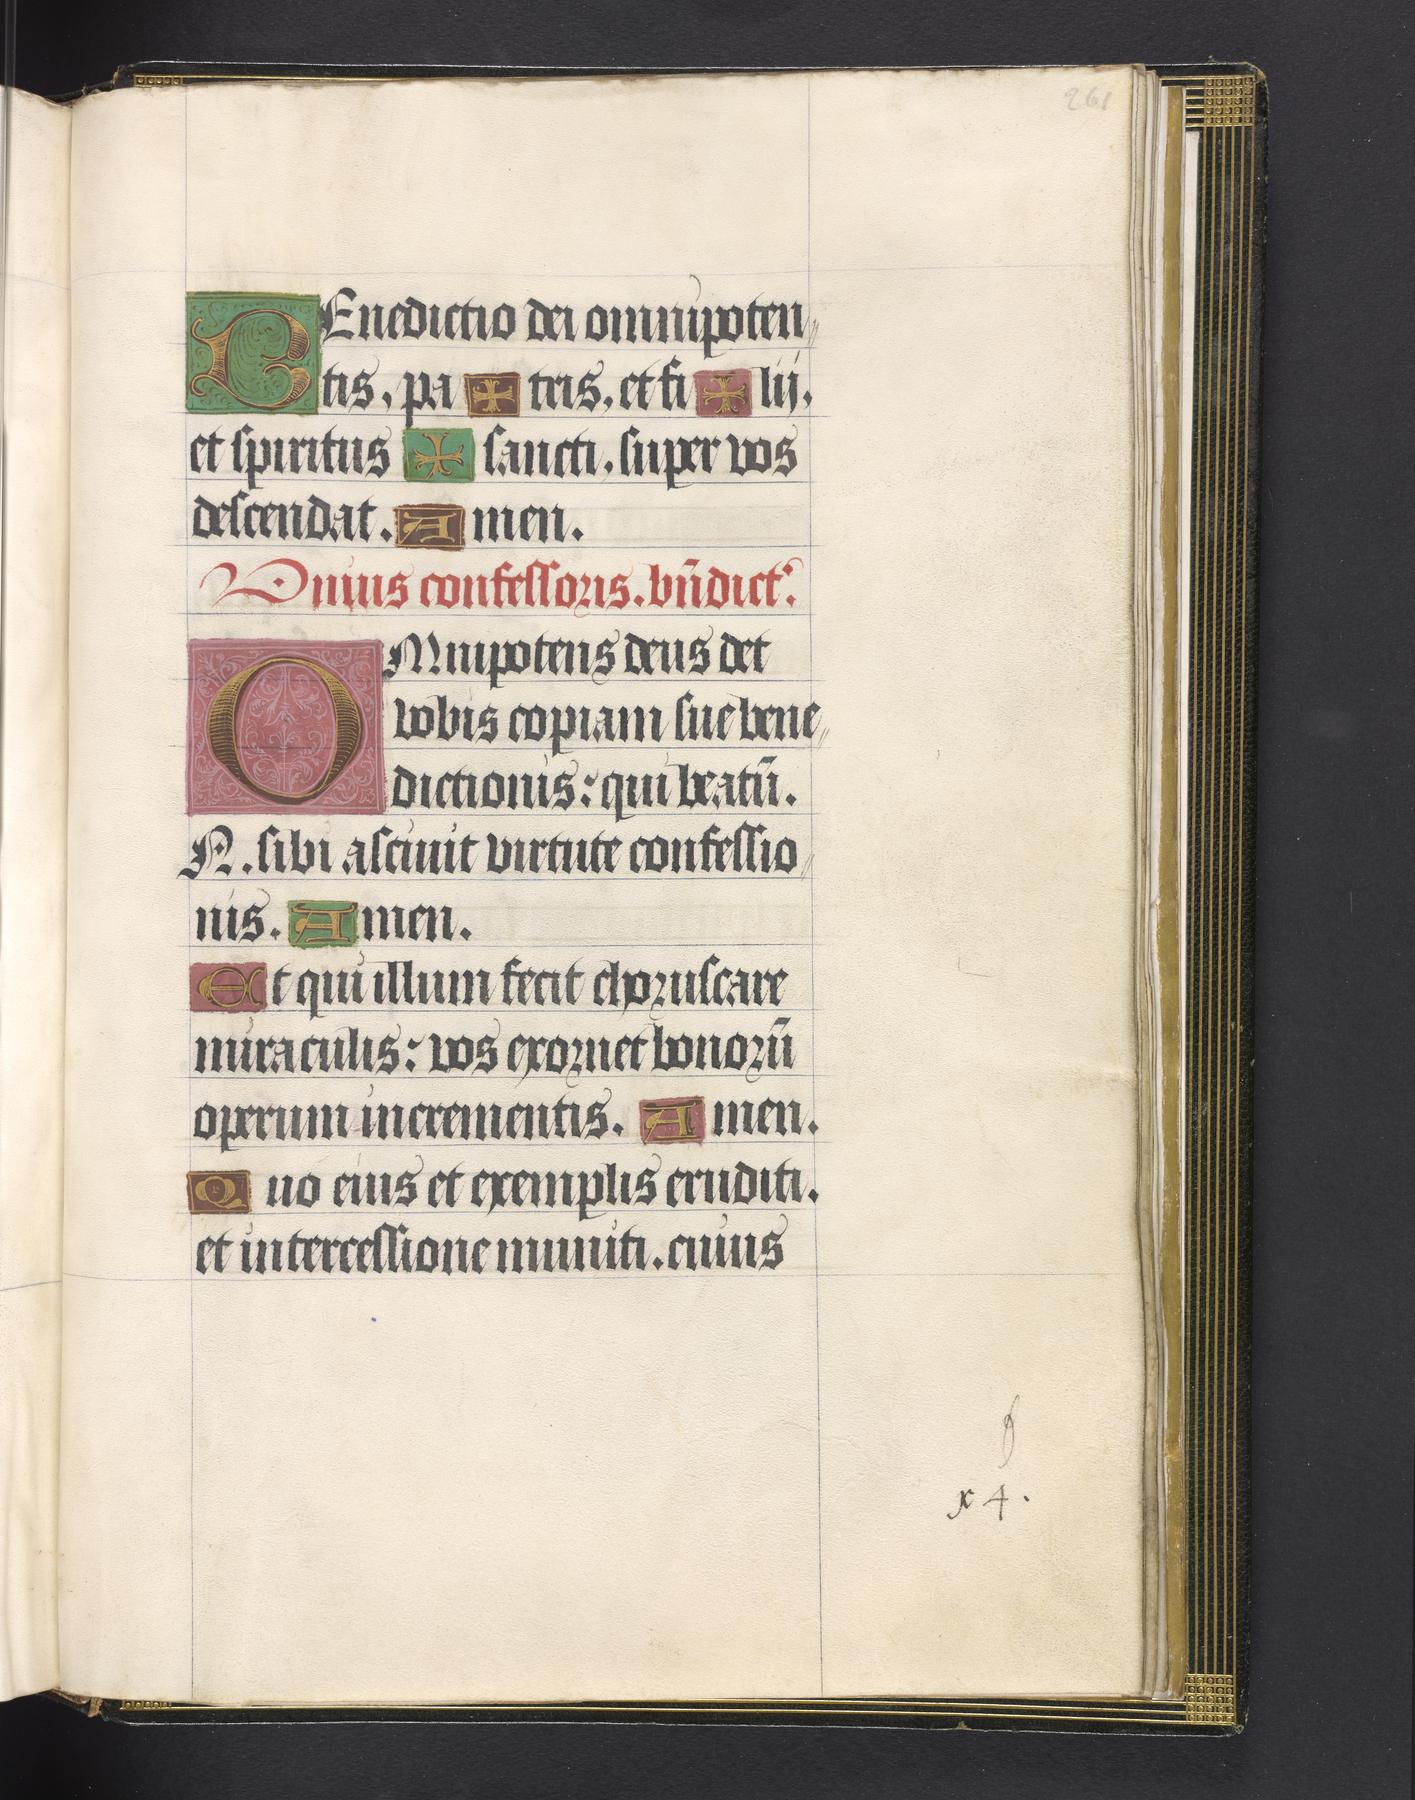 261
BEnedictio dei omnipoten,,
tis, pa ✠ tris, et fi ✠ lij.
et spiritus ✠ sancti. super vos
descendat. Amen.
Vnius confessoris. bn̄dict.
OMnipotens deus det
vobis copiam sue bene,,
dictionis: qui beatū.
N. sibi asciuit virtute confessio,,
nis. Amen.
Et qui illum fecit choruscare
miraculis: vos exornet bonorū
operum incrementis. Amen.
Quo eius et exemplis eruditi.
et intercessione muniti. cuius
x 4.